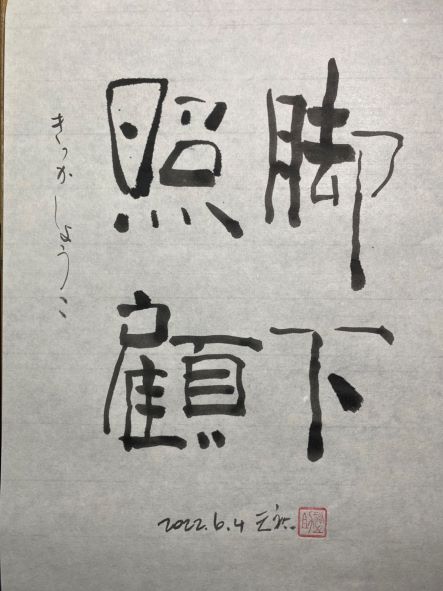 脚下
照顧
きゃっか しょうこ
2022.6.4